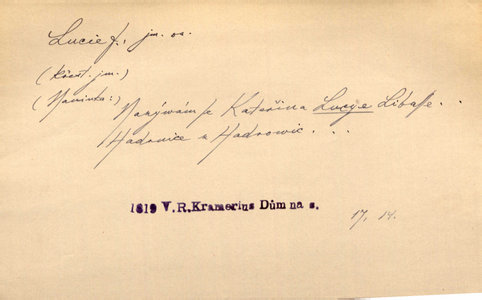 Lucie f., jm. os.
(křest. jm.)
(Maminka:) Nazývám se Kateřina Lucye Libuše..
Hadrnice z Hadrowic...
1819 V.R.Kramerius Dům na s.
17, 14.